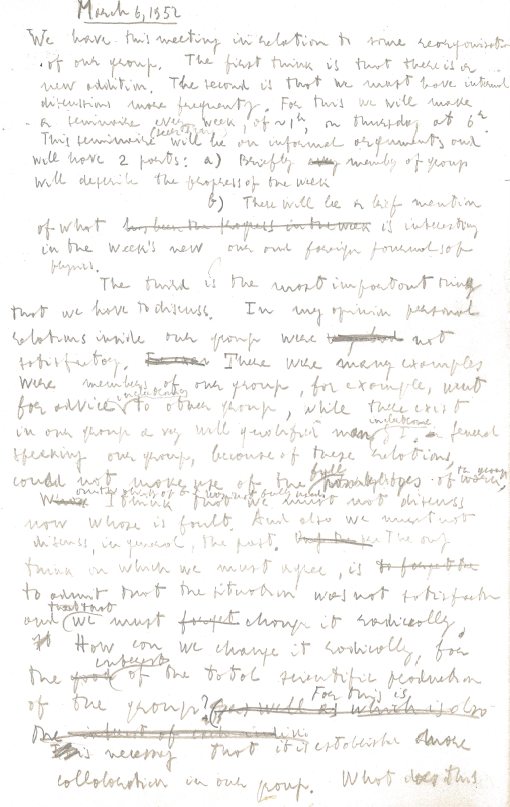 March 6, 1952
We have this meeting in relation to some reorganisation
of our group. The first think is that there is a
new addition. The second is that we must have internal
discussions more frequently. For this we will make
a seminaire every week, on thursday at 6
This seminaire will be on informal arguments and
will have 2 parts: a) Briefly member of group
will describe the progress of the week
b) There will be a brief mention
of what has been the progress in the week is interesting
in the week's new our and foreign journals of
physics.
The third is the most important thing
that we have to discuss. In my opinion personal
relations inside our group were not
satisfactory. There were many examples
were members of our group, for example, went
for advice to other group, while there exist
in our group a very well qualified man. general
speaking our group, because of these relations,
could not make use of the full possibilities of work,
I think that we must not discuss
now whose is fault. And also we must not
discuss, in general, the past. The only
think on which we must agree, is to forget the
to admit that the situation was not satisfactory
and that we must forget change it radically.
How can we change it radically, for
the good interest of the total scientific production
of the group? For this is
as well as which is also
the interest of each
is necessary that it is establishe more
collaboration in our group. What does this